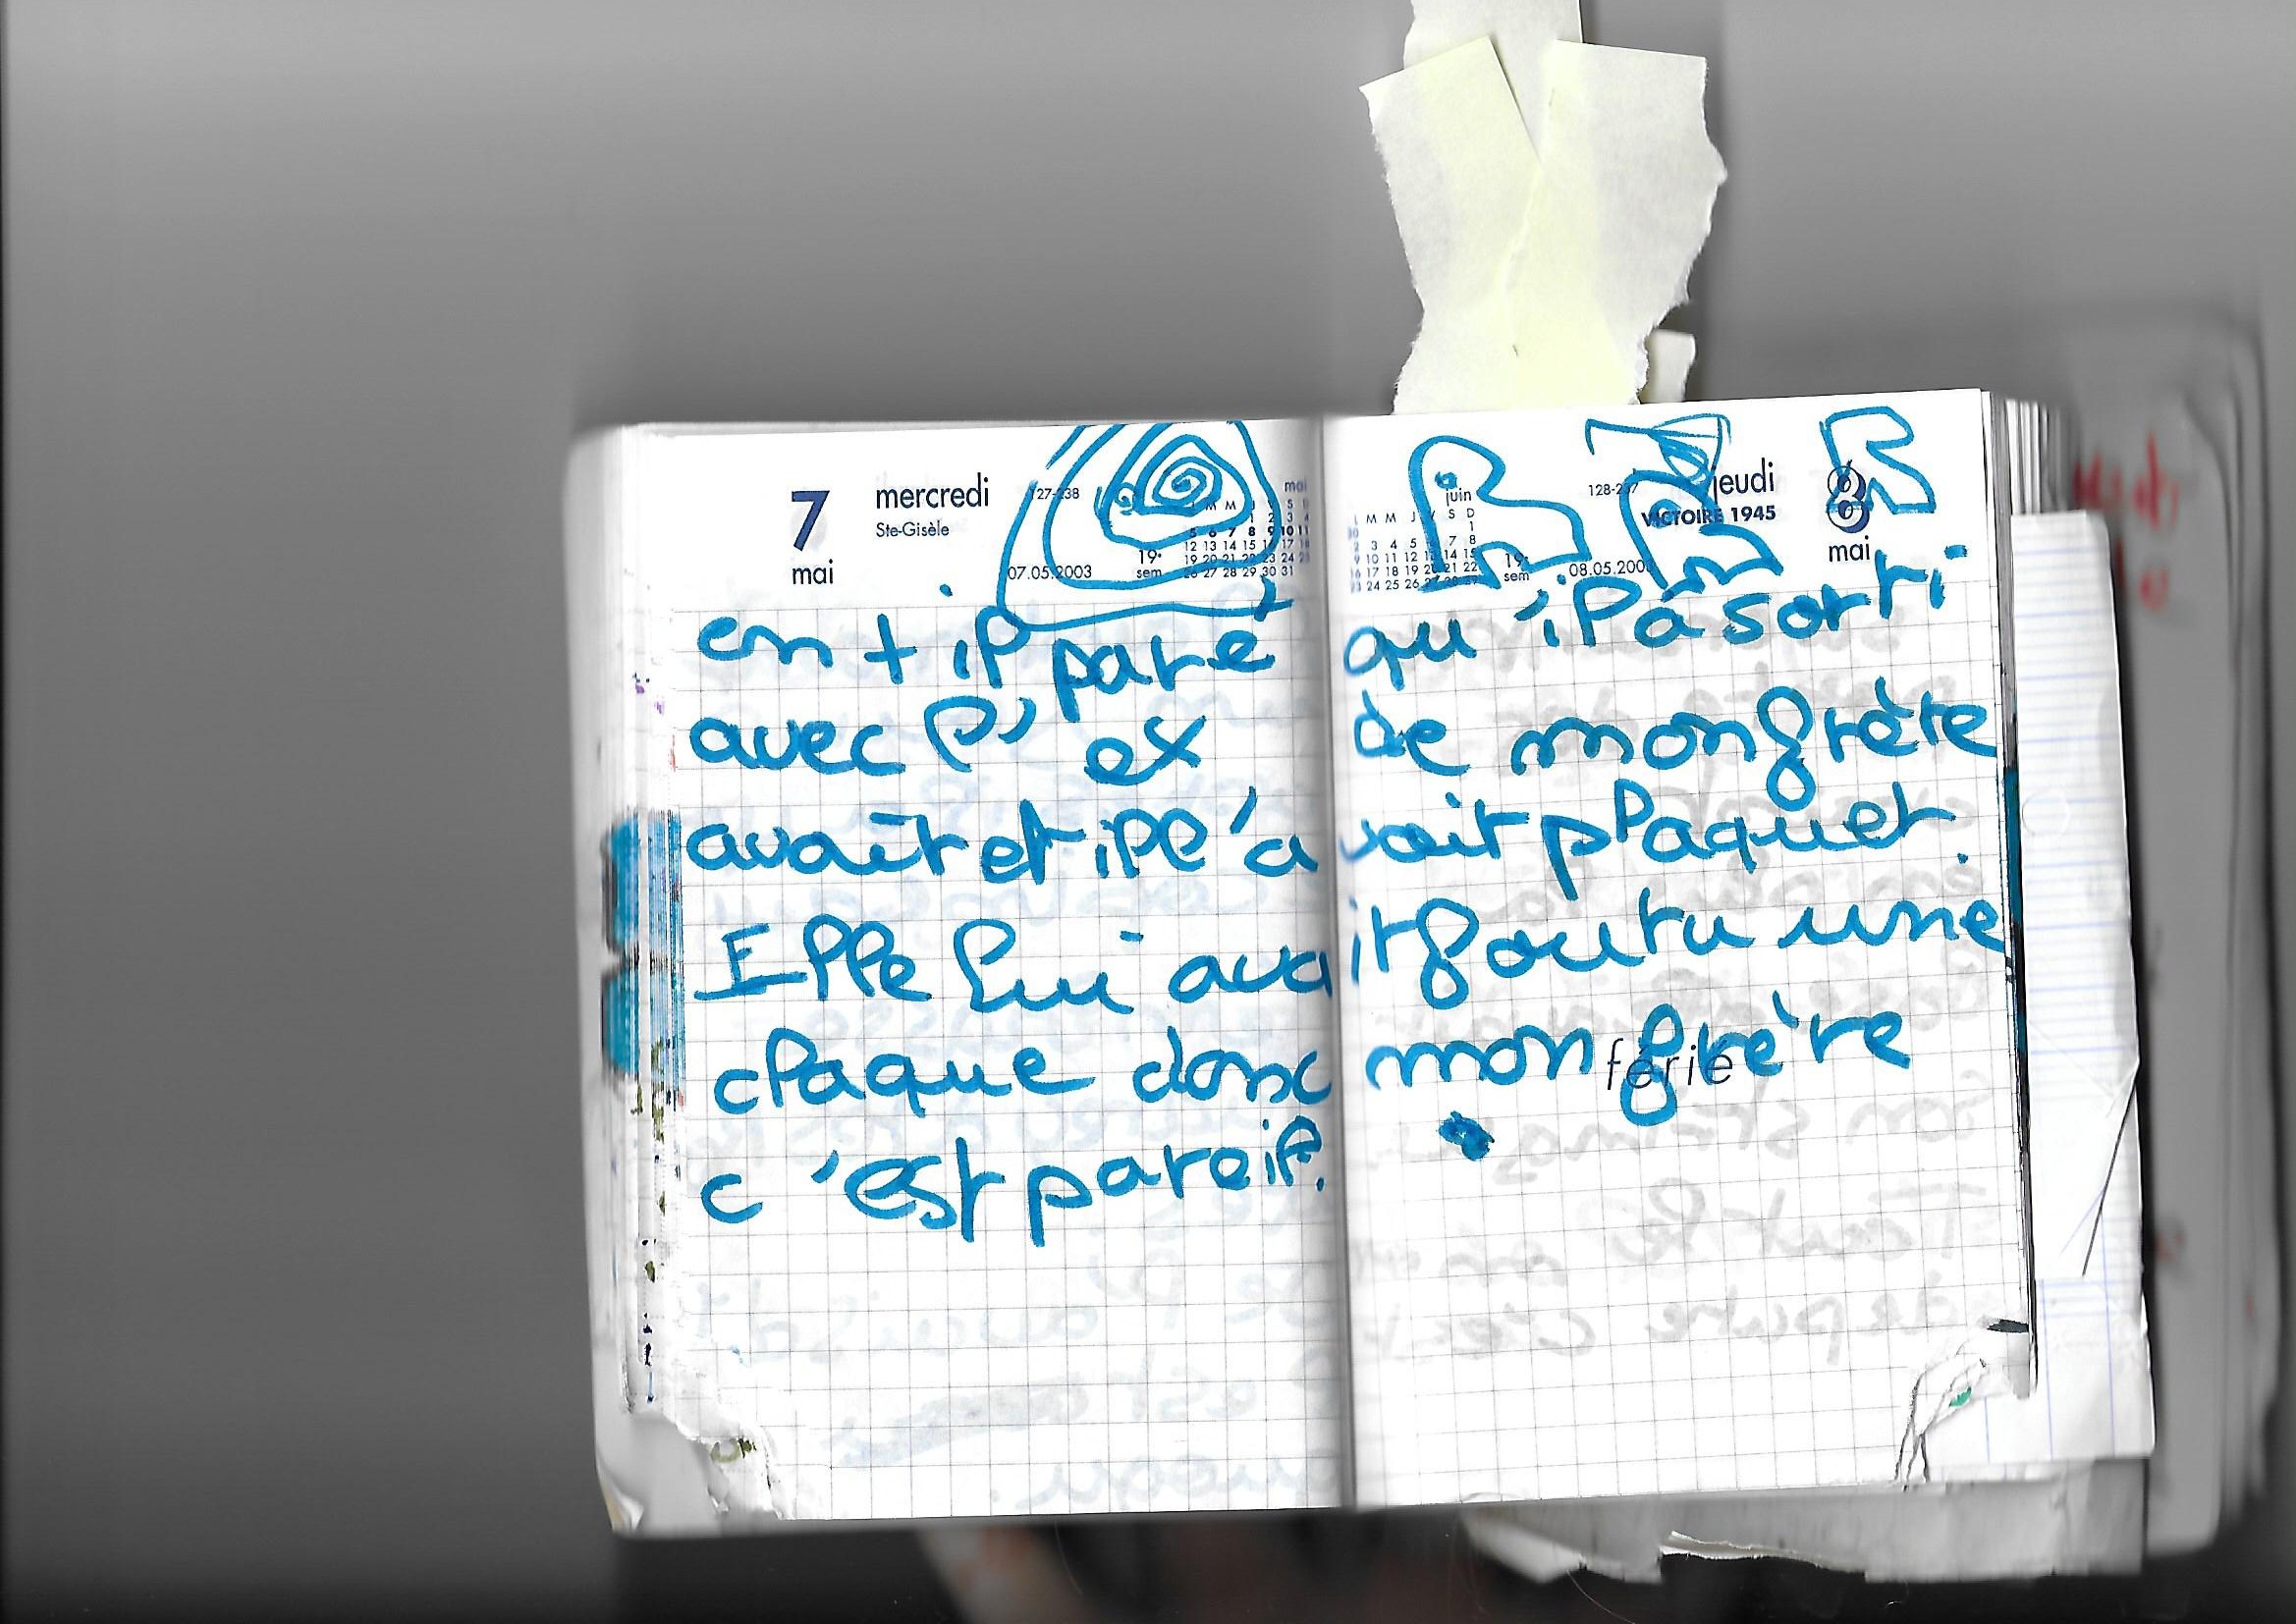 7 mercredi 127-238
Ste-Gisèle
mai 07.05.2003 19e sem
mai
12 13 14 15 16 17 18
19 20 21 22 23 24 25
26 27 28 29 30 31
juin
L M M J V S D
1
2 3 4 5 6 7 8
9 10 11 12 13 14 15
16 17 18 19 20 21 22
23 24 25 26 27 28 29
19e sem
128-237 jeudi 8
VICTOIRE 1945
08.05.2003 mai
en + il paré qu'il a sorti
avec l' ex de mon frère
avait et il l'avait plaquer.
Elle lui avait foutu une
claque donc mon frère
férié
c'est pareil.